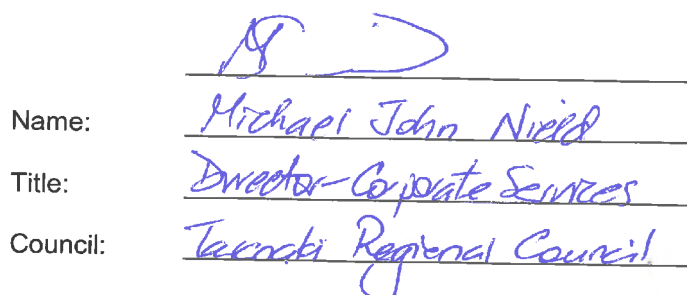 Name: Michael John Nield
Title: Director-Corporate Services
Council: Taranaki Regional Council